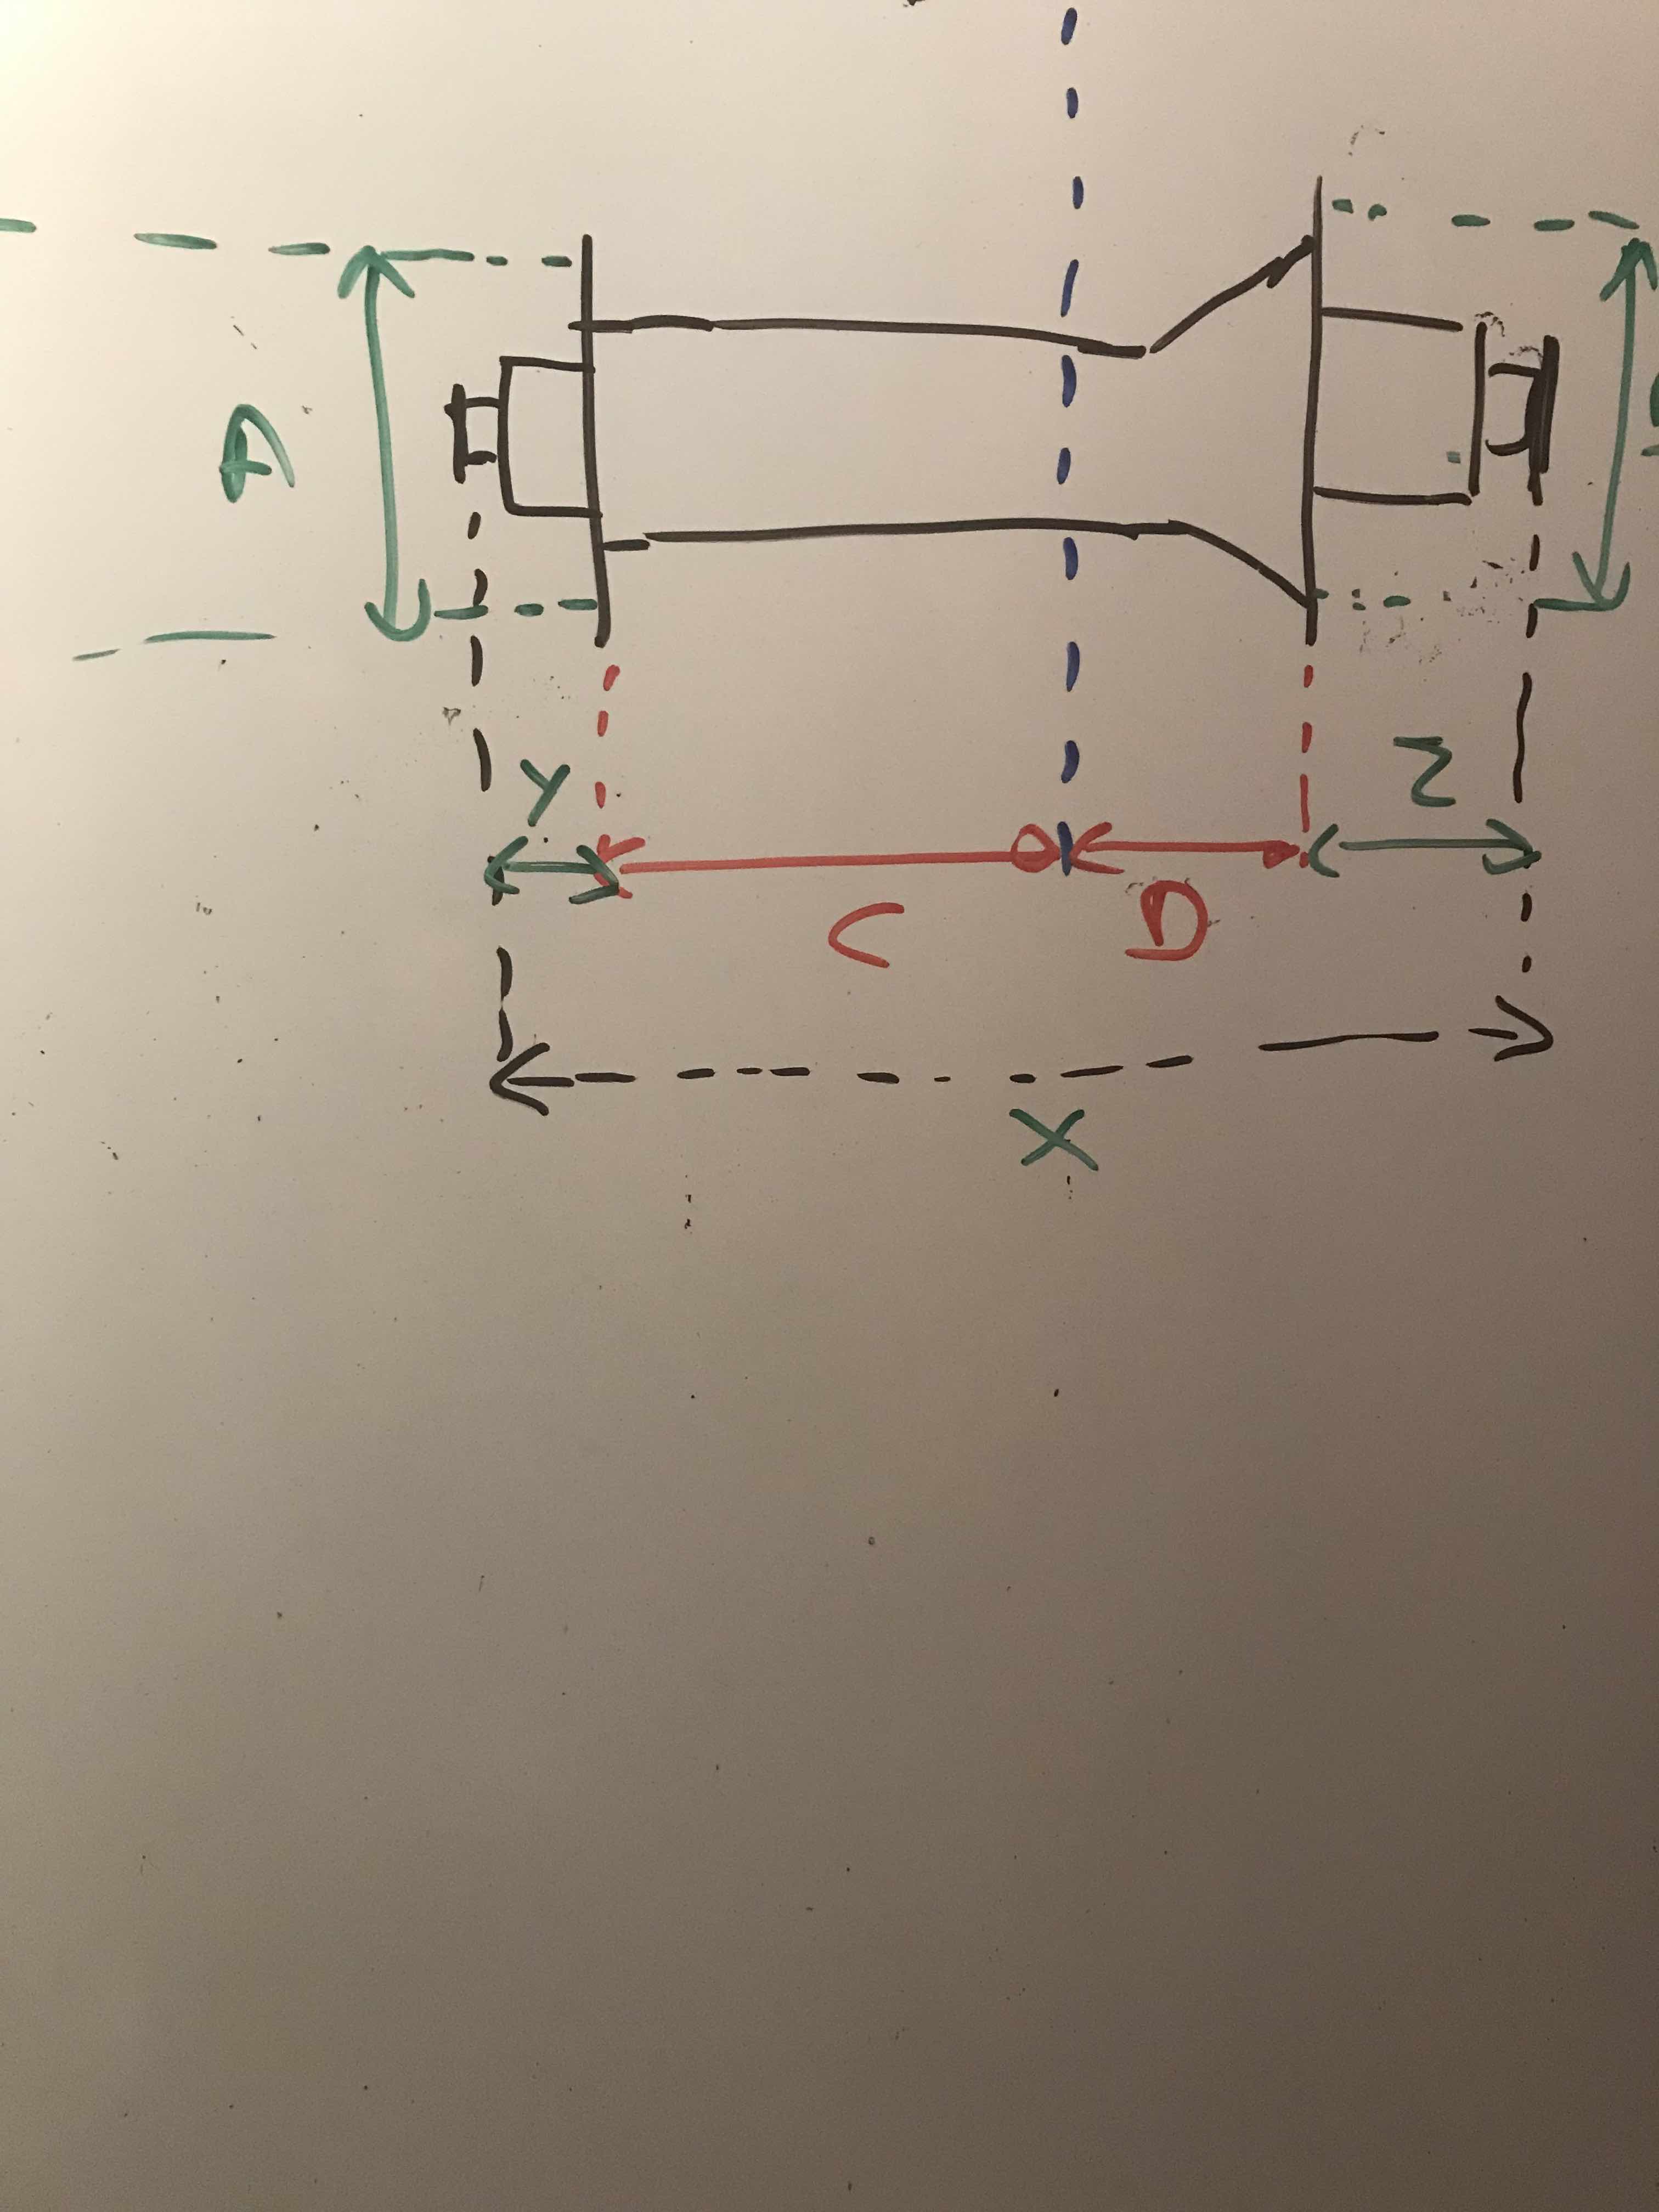 A
Y
Z
C
D
X